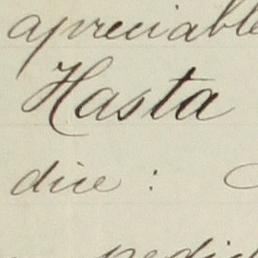 apreciable
Hasta
dice :